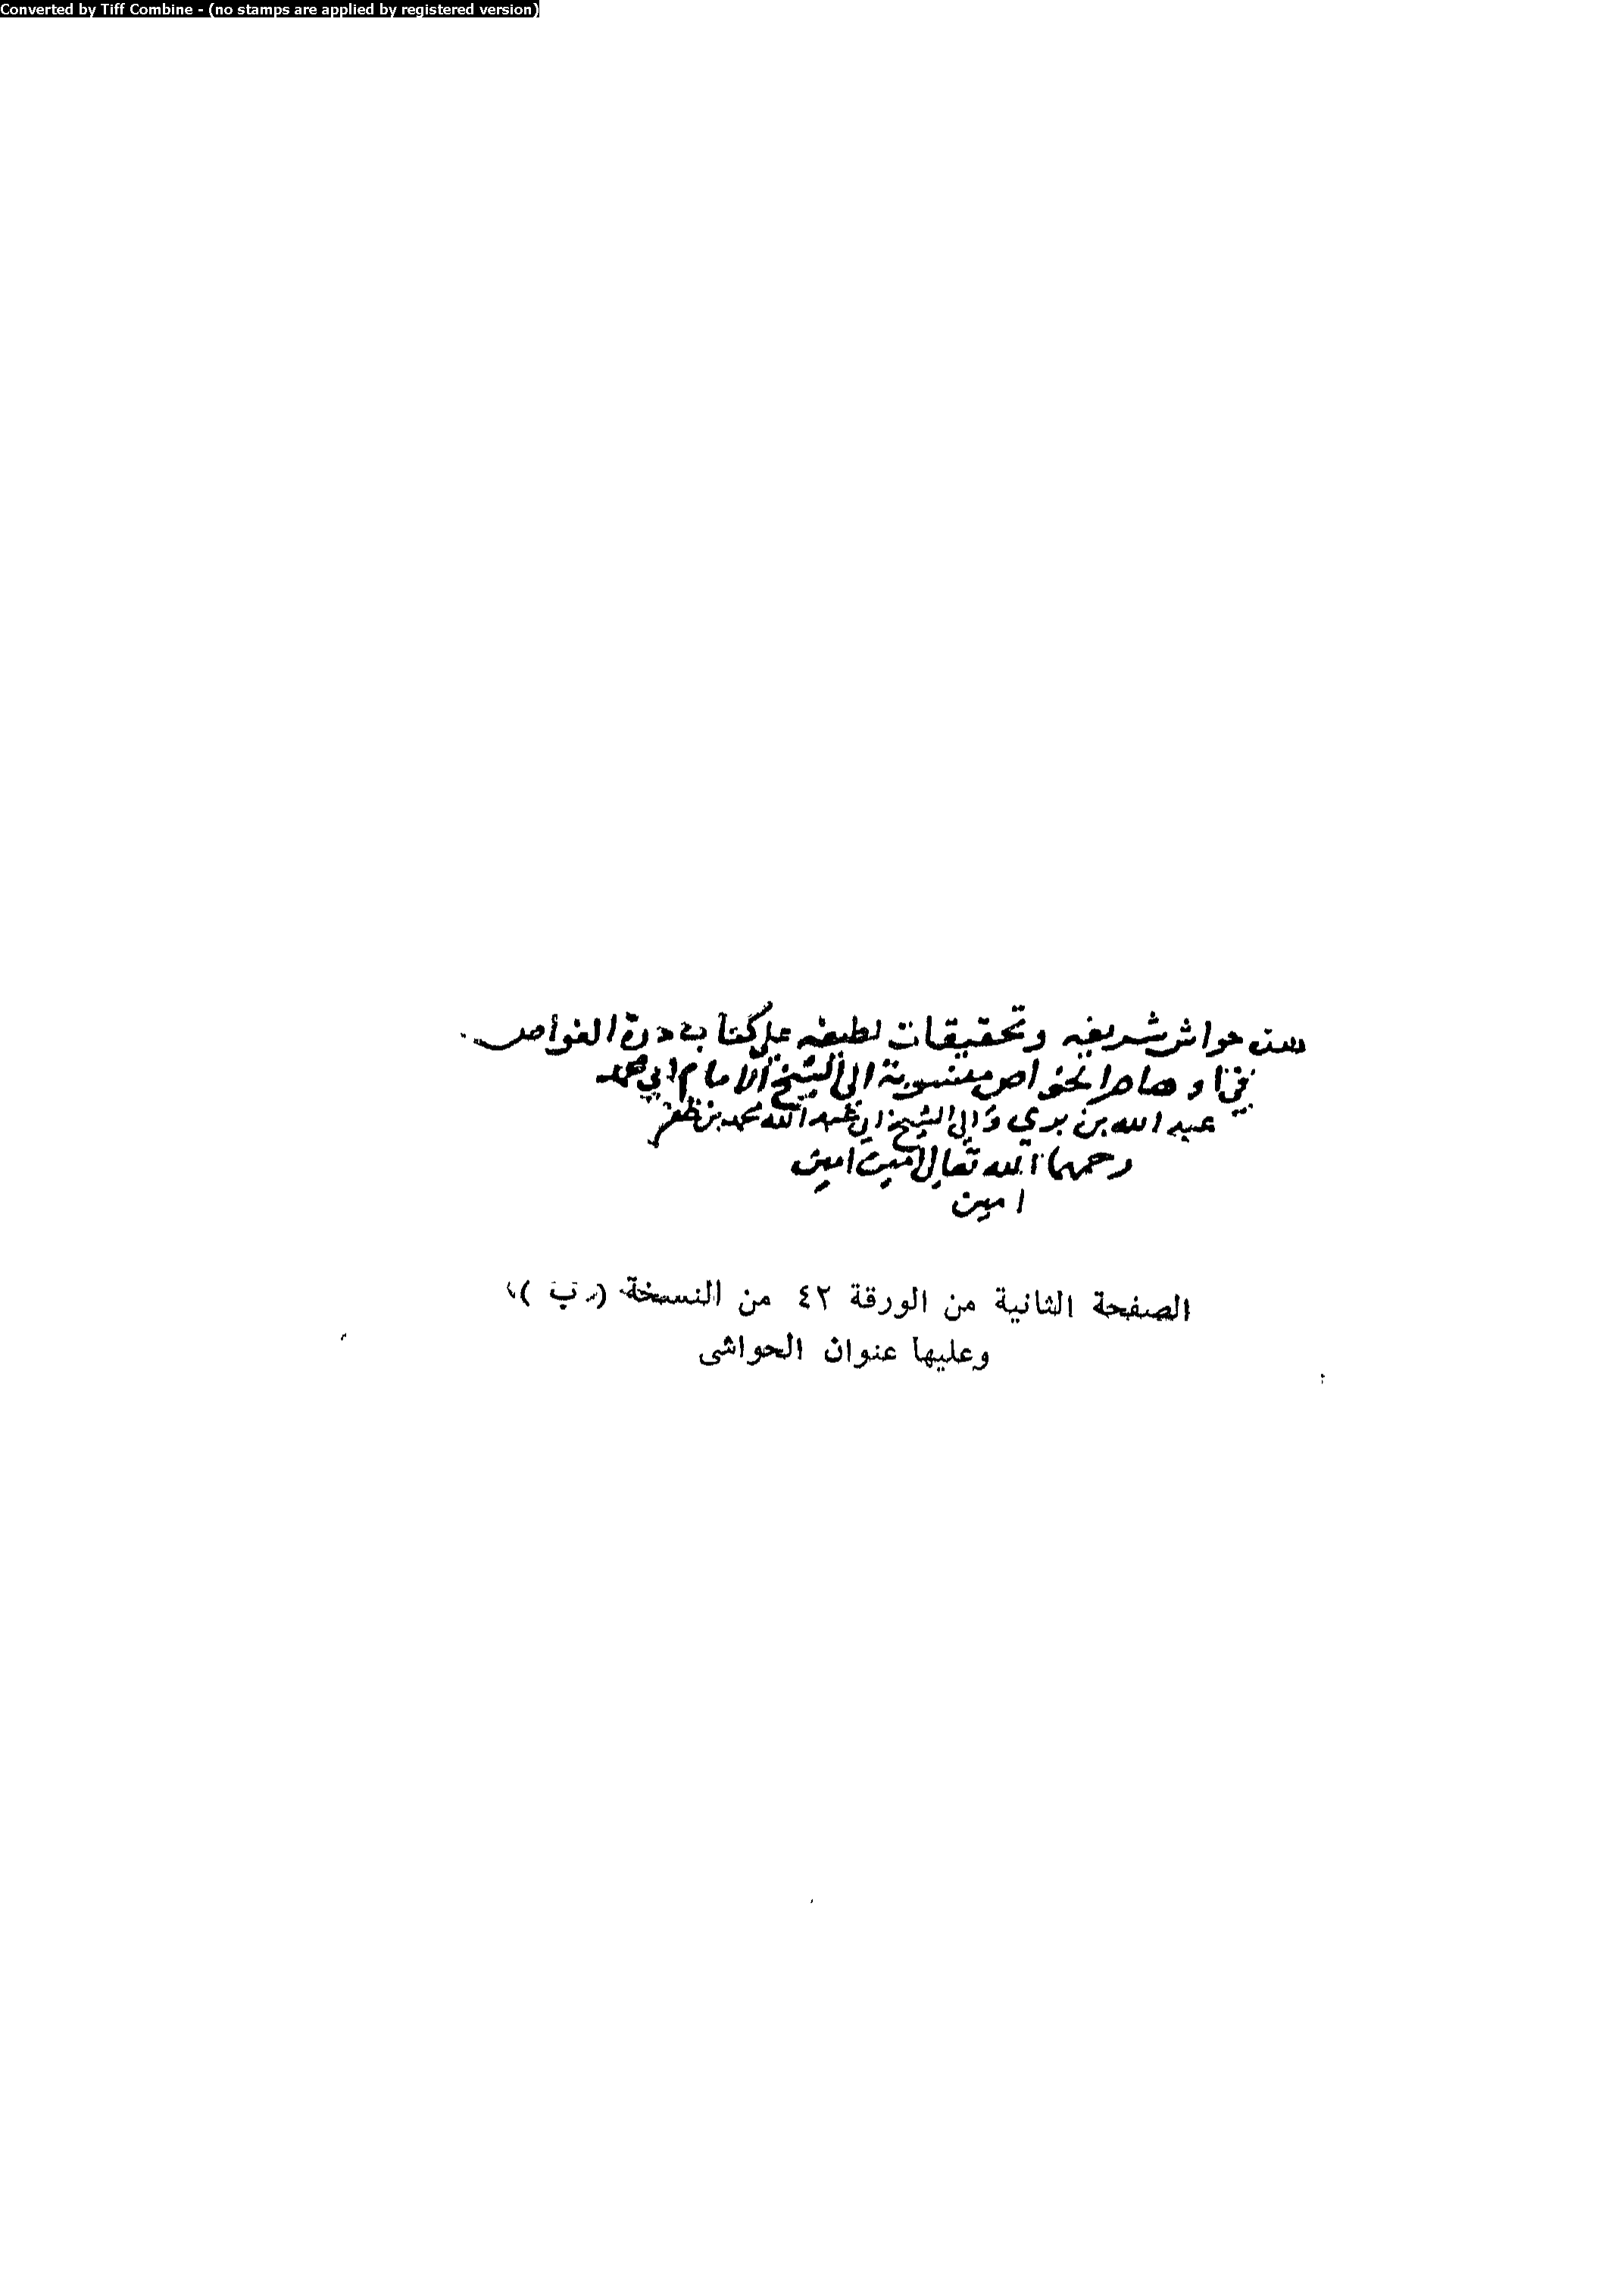 Converted by Tiff Combine - (no stamps are applied by registered version)
هذه حواش شريفه وتحقيقات لطيفه على كتاب درة الغواص
في اوهام الخواص منسوبة الى الشيخ الامام ابي محمد
عبد الله بن بري والى الشيخ ابي عبد الله محمد بن ظفر
رحمهما الله تعالى امين امين
امين
الصفحة الثانية من الورقة ٤٢ من النسخة ( ب )
وعليها عنوان الحواشى